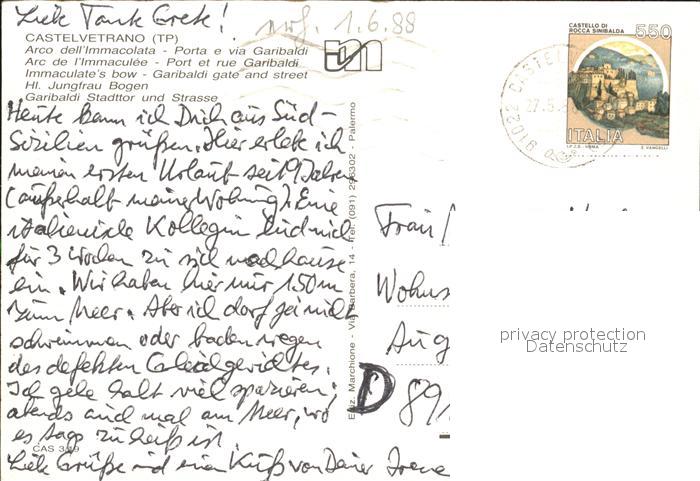 Liebe Tante Grete!
1.6.88
CASTELVETRANO (TP)
Arco dell'Immacolata - Porta e via Garibaldi
Arc de l'Immaculée - Port et rue Garibaldi
Immaculate's bow - Garibaldi gate and street
Hl. Jungfrau Bogen
Garibaldi Stadttor und Strasse
CASTELLO DI
ROCCA SINIBALDA
550
ITALIA
I.P.Z.S. - ROMA
E. VANGELLI
91022 CASTEL
27.5.
Heute kann ich Dich aus Süd-
Sizilien grüßen. Hier erlebe ich
meinen ersten Urlaub seit 9 Jahren
(außerhalb meine Wohnung). Eine
italienische Kollegin lud mich
für 3 Wochen zu sich nachhause
ein. Wir haben hier nur 150 m
zum Meer. Aber ich darf ja nicht
schwimmen oder baden wegen
des defekten Gleichgewichtes.
Ich gehe halt viel spazieren,
abends auch mal am Meer, wo
es tags zu heiß ist.
CAS 3/49
Liebe Grüße und einen Kuß von Deiner Irene
Ediz. Marchione - Via Barbera, 14 - Tel. (091) 296302 - Palermo
Frau
Wohns
Aug
D 89
privacy protection
Datenschutz